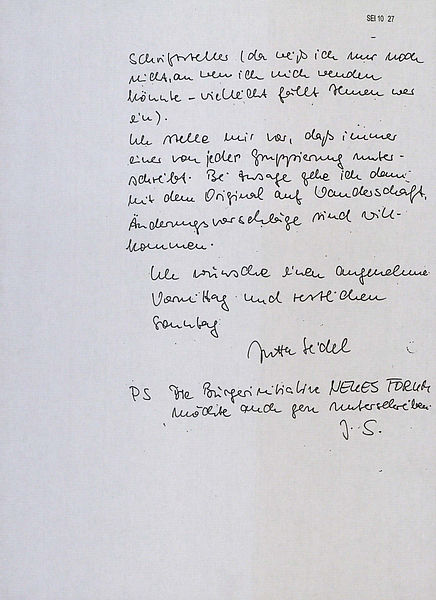 SEI 10 27
Schriftsteller (da weiß ich nur noch
nicht, an wen ich mich wenden
könnte – vielleicht fällt Ihnen wer
ein).
Ich stelle mir vor, daß immer
einer von jeder Gruppierung unter-
schreibt. Bei Zusage gehe ich dann
mit dem Original auf Wanderschaft.
Änderungsvorschläge sind will-
kommen.
Ich wünsche einen angenehmen
Vormittag und restlichen
Sonntag
Jutta Seidel
PS Die Bürgerinitiative NEUES FORUM
möchte auch gern unterschreiben.
J. S.